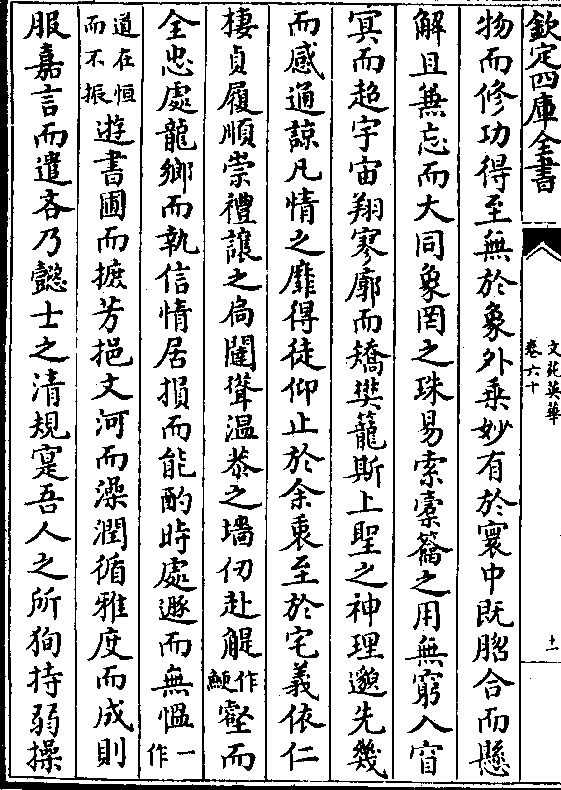 欽定四庫全書
文苑英華
卷六十
十一
物而修功得至無於象外乗妙有於寰中既脗合而懸
解且兼忘而大同象罔之珠易索槖籥之用無窮入窅
㝠而超宇宙翔寥廓而矯樊籠斯上聖之神理邈先幾
而感通諒凡情之靡得徒仰止於余衷至於宅義依仁
棲貞履順崇禮讓之扃闥聳溫恭之墻仞赴鯷作鯁壑而
全忠處龍鄉而執信惰居損而能酌時處遯而無慍一作
道在恒而不振遊書圃而摭芳挹文河而澡潤循雅度而成則
服嘉言而遣吝乃懿士之清規寔吾人之所狥持弱操